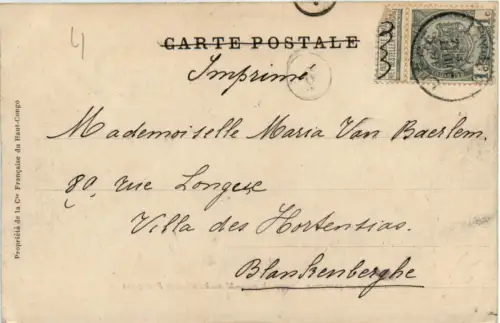 4
CARTE POSTALE
Imprimé
Mademoiselle Maria Van Baerlem.
80, rue Longese
Villa des Hortensias.
Blankenberghe
Propriété de la Cie Française du Haut-Congo